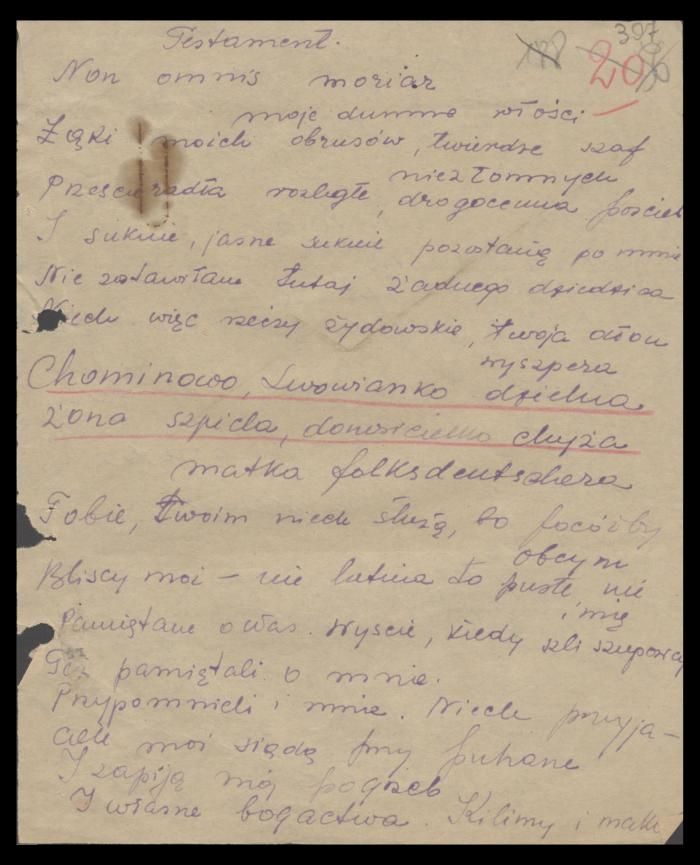 397
20
Testament.
Non omnis moriar
moje dumne włości
Łąki moich obrusów, twierdze szaf
niezłomnych
Prześcieradła rozległe, drogocenna pościel
I suknie, jasne suknie pozostaną po mnie
Nie zostawiłam tutaj żadnego dziedzica
Niech więc rzeczy żydowskie, twoja dłoń
wyszpera
Chominowo, Lwowianko dzielna
żono szpicla, donosicielko chyża
matko folksdeutschera
Tobie, Twoim niech służą, bo pocóżby
obcym
Bliscy moi – nie lutnia to puste nie
imię
Pamiętam o was. Wyście, kiedy szli szupowcy
Też pamiętali o mnie.
Przypomnieli i mnie. Niech przyja-
ciele moi siądą przy puharze
I zapiją mój pogrzeb
I własne bogactwa. Kilimy i maka